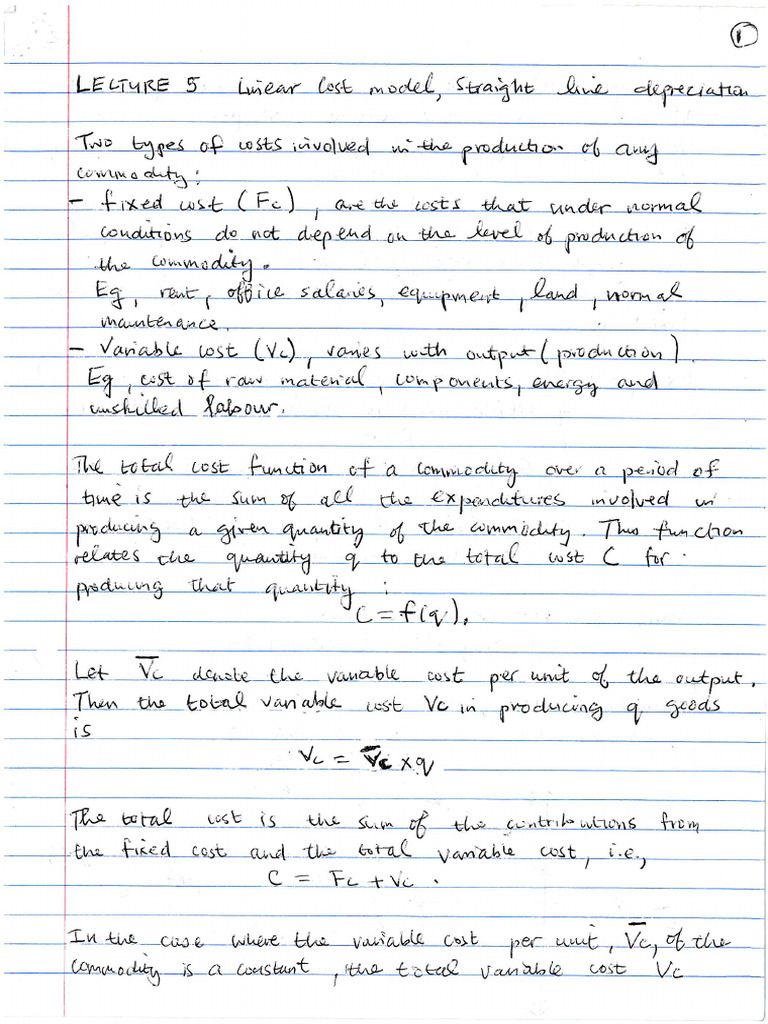 1
LECTURE 5 Linear Cost model, Straight line depreciation
Two types of costs involved in the production of any
commodity:
- fixed cost (Fc), are the costs that under normal
conditions do not depend on the level of production of
the commodity.
Eg, rent, office salaries, equipment, land, normal
maintenance.
- Variable cost (Vc), varies with output (production).
Eg, cost of raw material, components, energy and
unskilled labour.
The total cost function of a commodity over a period of
time is the sum of all the expenditures involved in
producing a given quantity of the commodity. This function
relates the quantity q to the total cost C for
producing that quantity:
C = f(q).
Let V̅c denote the variable cost per unit of the output.
Then the total variable cost Vc in producing q goods
is
Vc = V̅c × q
The total cost is the sum of the contributions from
the fixed cost and the total variable cost, i.e.,
C = Fc + Vc.
In the case where the variable cost per unit, V̅c, of the
commodity is a constant, the total variable cost Vc